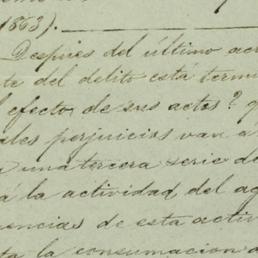 1863).
Despues del último ac
te del delito está term
l efecto de sus actos? q
ales perjuicios van a
una tercera serie de
á la actividad del ag
uencias de esta activ
ta la consumacion d